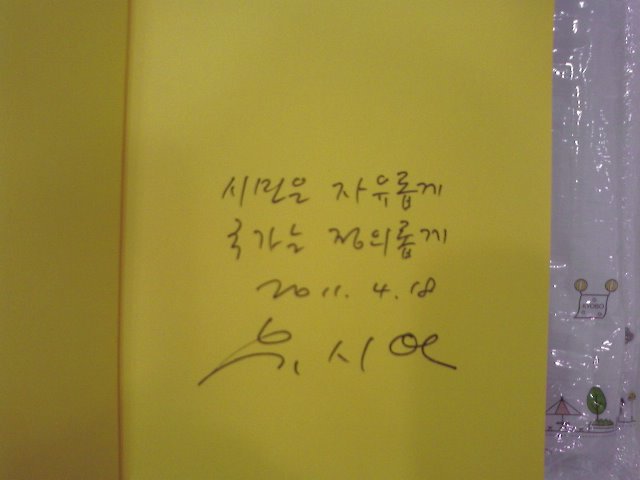 시민은 자유롭게
국가는 정의롭게
2011. 4. 18
유시민
KYOBO